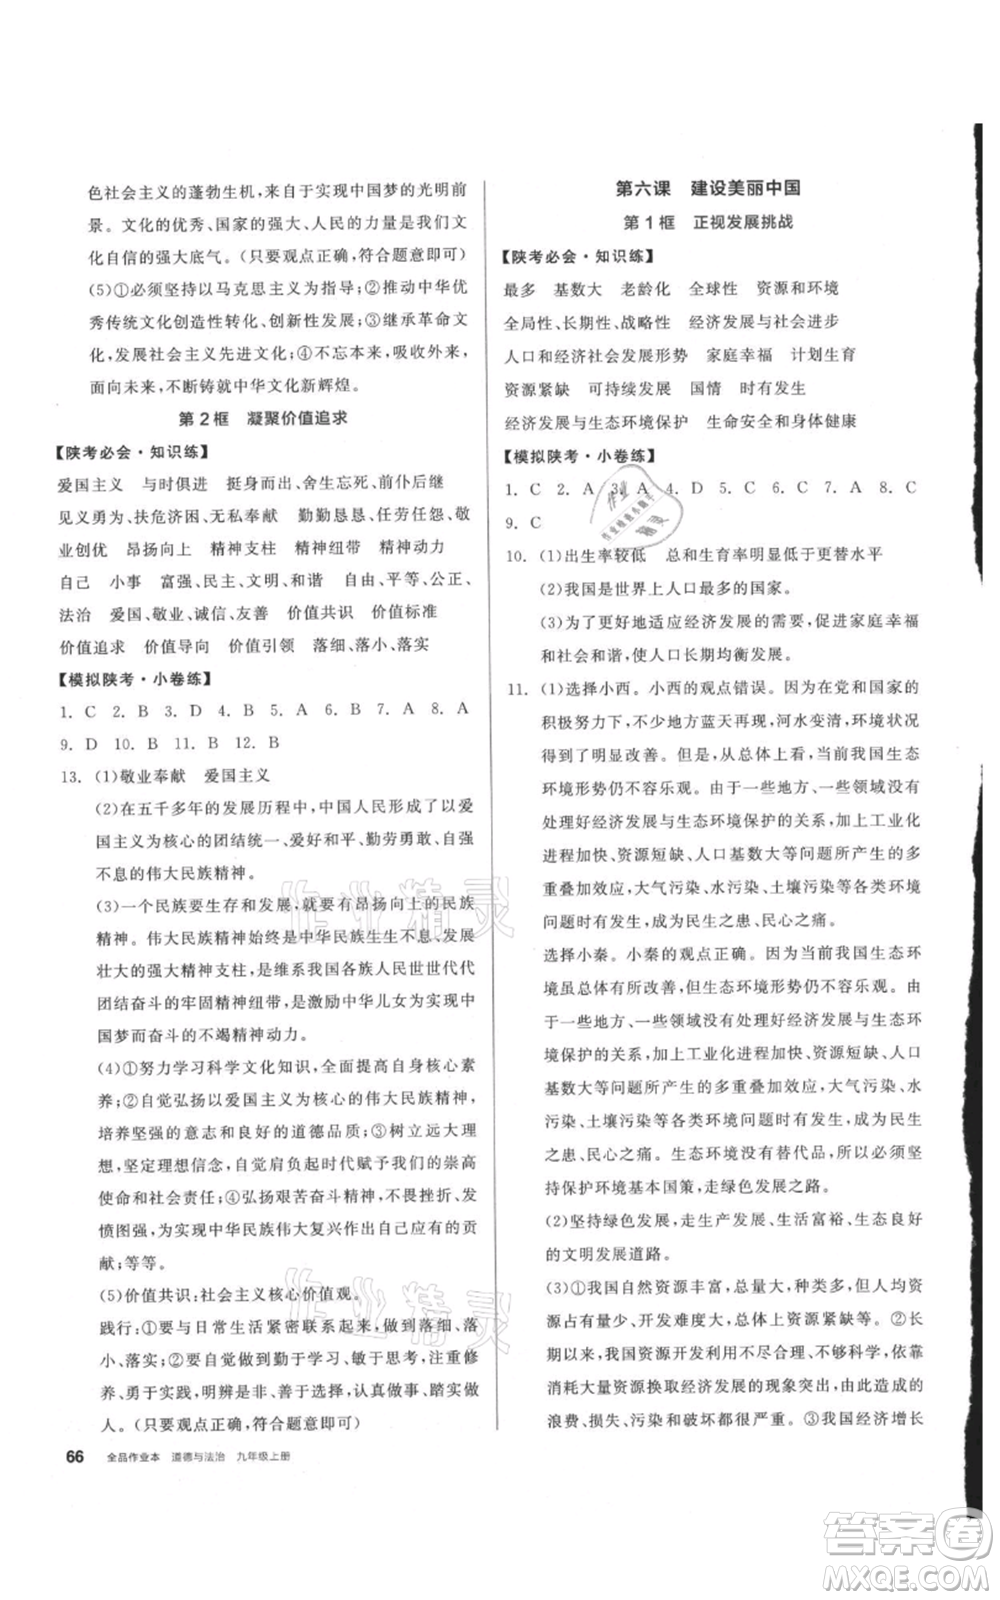 色社会主义的蓬勃生机,来自于实现中国梦的光明前
景。文化的优秀、国家的强大、人民的力量就是我们
文化自信的强大底气。(只要观点正确,符合题意即可)
(5)①必须坚持以马克思主义为指导;②推动中华优
秀传统文化创造性转化、创新性发展;③继承革命文
化,发展社会主义先进文化;④不忘本来,吸收外来,
面向未来,不断铸就中华文化新辉煌。
第2框 凝聚价值追求
【陕考必会·知识练】
爱国主义 与时俱进 挺身而出、舍生忘死、前仆后继
见义勇为、扶危济困、无私奉献 勤勤恳恳、任劳任怨、敬
业创优 昂扬向上 精神支柱 精神纽带 精神动力
自己 小事 富强、民主、文明、和谐 自由、平等、公正、
法治 爱国、敬业、诚信、友善 价值共识 价值标准
价值追求 价值导向 价值引领 落细、落小、落实
【模拟陕考·小卷练】
1. C 2. B 3. D 4. D 5. B 6. B 7. A 8. A
9. D 10. B 11. B 12. B
13. (1)敬业奉献 爱国主义
(2)在五千多年的发展历程中,中国人民形成了以爱
国主义为核心的团结统一、爱好和平、勤劳勇敢、自强
不息的伟大民族精神。
(3)一个民族要生存和发展,就要有昂扬向上的民族
精神。伟大民族精神始终是中华民族生生不息、发展
壮大的强大精神支柱,是维系我国各族人民世世代代
团结奋斗的牢固精神纽带,是激励中华儿女为实现中
国梦而奋斗的不竭精神动力。
(4)①努力学习科学文化知识,不断提高自身核心素
养;②自觉弘扬以爱国主义为核心的伟大民族精神,
培养坚强的意志和良好的道德品质;③树立远大理
想,坚定理想信念,自觉肩负起时代赋予我们的崇高
使命和社会责任;④弘扬艰苦奋斗的精神,不畏挫折,发
愤图强,为实现中华民族伟大复兴作出自己应有的贡
献;等等。
(5)价值共识:社会主义核心价值观。
践行:①要与日常生活紧密联系起来,做到落细、落
小、落实;②要勤于学习、敏于思考,注重修养、
勇于实践,明辨是非、善于选择,认真做事、踏实做
人。(只要观点正确、符合题意即可)
66 全品作业本 道德与法治 九年级上册
第六课 建设美丽中国
第1框 正视发展挑战
【陕考必会·知识练】
最多 基数大 老龄化 全球性 资源和环境
全局性、长期性、战略性 经济发展与社会进步
人口和经济社会发展形势 家庭幸福 计划生育
资源紧缺 可持续发展 国情 时有发生
经济发展与生态环境保护 生命安全和身体健康
【模拟陕考·小卷练】
1. C 2. A 3. A 4. D 5. C 6. C 7. A 8. C
9. C
10. (1)出生率较低 总和生育率明显低于更替水平
(2)我国是世界上人口最多的国家。
(3)为了更好地适应经济发展的需要,促进家庭幸福
和社会和谐,使人口长期均衡发展。
11. (1)选择小西。小西的观点错误。因为在党和国家的
积极努力下,不少地方蓝天再现,河水变清,环境状况
得到了明显改善。但是从总体上看,当前我国生态环
境形势仍不容乐观。由于一些地方、一些领域没有
处理好经济发展与生态环境保护的关系,加上工业化
进程中,资源短缺、人口基数大等问题所产生的多
重叠加效应,大气污染、水污染、土壤污染等环境
问题时有发生,成为民生之患、民心之痛。
选择小秦。小秦的观点正确。因为当前我国生态环
境虽总体有所改善,但生态环境形势仍不容乐观。由
于一些地方、一些领域没有处理好经济发展与生态环
境保护的关系,加上工业化进程中,资源短缺、人口
基数大等问题所产生的多重叠加效应,大气污染、水
污染、土壤污染等环境问题时有发生,成为民生
之患、民心之痛。生态环境问题依然严峻,必须坚
持保护环境基本国策,走绿色发展之路。
(2)坚持绿色发展,走生产发展、生活富裕、生态良好
的文明发展道路。
(3)①我国自然资源丰富,总量大,种类多,但人均资
源占有量少,开发难度大,总体上资源紧缺。②在长
期以来,我国资源开发利用不尽合理、不够科学,
消耗大量资源换取经济发展的现象突出,由此造成的
浪费、损失、污染和破坏都很严重。③我国经济增长
作业精灵
答案圈
MXQE.COM